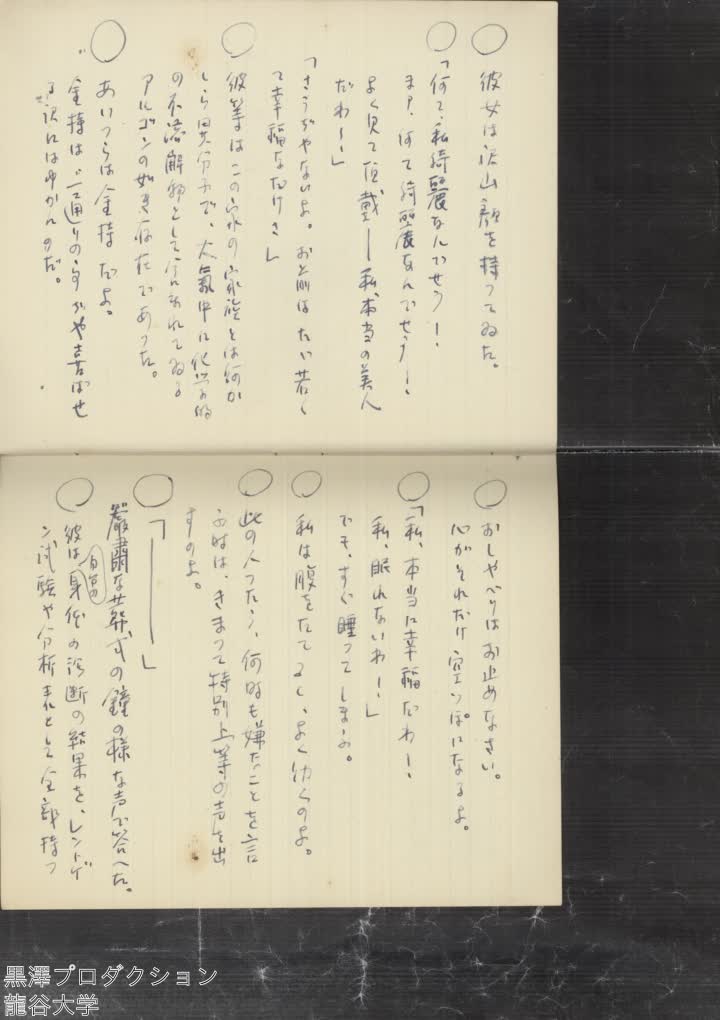 ○ 彼女は沢山顔を持つてゐた。
○「何て、私綺麗なんでせう！
まア、何て綺麗なんでせう！
よく見て頂戴――私、本当の美人
だわ！」
「さうぢやないよ。お前はたゞ若く
て幸福なだけさ」
○ 彼等はこの家の家族とは何か
しら異分子で、大氣中に化学的
の不溶解物として含まれてゐる
アルゴンの如き存在であつた。
○ あいつらは金持だよ。
金持は、一通りの事ぢや喜ばせ
る訳にはゆかんのだ。
○ おしやべりはお止めなさい。
心がそれだけ空つぽになるよ。
○「私、本当に幸福だわ！
私、眠れないわ！」
でも、すぐ睡つてしまふ。
○ 私は腹をたてると、よく効くのよ。
○ 此の人つたら、何時も嫌なことを言
ふ時は、きまつて特別上等の声を出
すのよ。
○「―――」
嚴肅な葬式の鐘の様な声で答へた。
○ 彼は自分の身体の診断の結果を、レントゲ
ン試験や分析表として全部持つ
黒澤プロダクション
龍谷大学